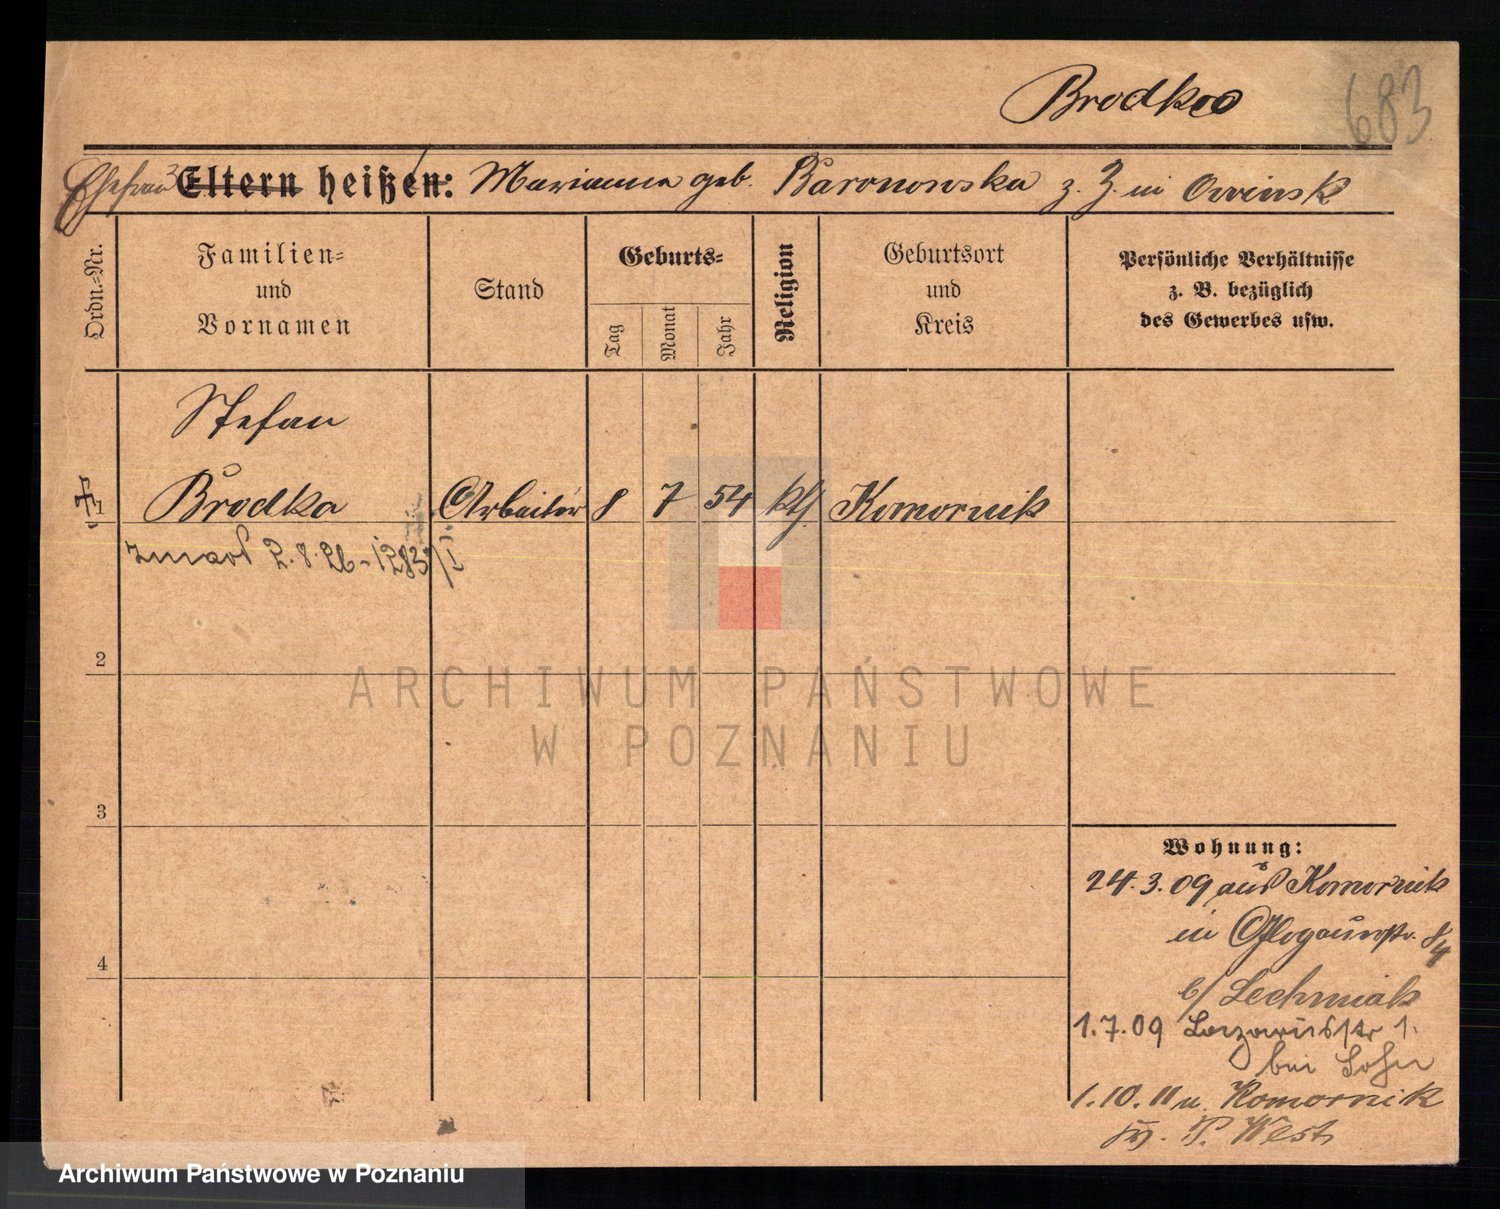 Brodka
683
Ehefrau Eltern heißen: Marianna geb. Baronowska z. Z. in Owinsk
Ordn.-Nr.
Familien-
und
Vornamen
Stand
Geburts-
Tag
Monat
Jahr
Religion
Geburtsort
und
Kreis
Persönliche Verhältnisse
z. B. bezüglich
des Gewerbes usw.
Stefan
1 Brodka Arbeiter 8 7 54 kth. Komornik
zmarł 2.8.26 - 1283/I
2
3
4
Wohnung:
24.3.09 aus Komornik
in Glogauerstr. 84
b/ Lechniak
1.7.09 Lazarusstr 1.
bei Sohn
1.10.11 n. Komornik
P. West
ARCHIWUM PAŃSTWOWE
W POZNANIU
Archiwum Państwowe w Poznaniu